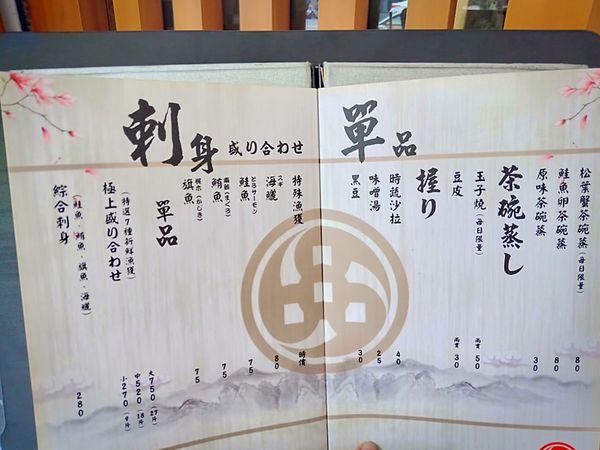 單品
松葉蟹茶碗蒸(每日限量) 80
鮭魚卵茶碗蒸 80
原味茶碗蒸 30
茶碗蒸し
玉子燒(每日限量) 兩貫 50
豆皮 兩貫 30
握り
時蔬沙拉 40
味噌湯 25
黑豆 30
刺身 盛り合わせ
特殊漁獲 時價
海鱺 スギ 80
鮭魚 とろサーモン 75
鮪魚 南鮪(まぐろ) 75
旗魚 梶木(かじき) 75
單品
極上盛り合わせ
(特選7種新鮮漁獲)
大750(27片)
中520(18片)
小270(9片)
綜合刺身
(鮭魚、鮪魚、旗魚、海鱺) 280